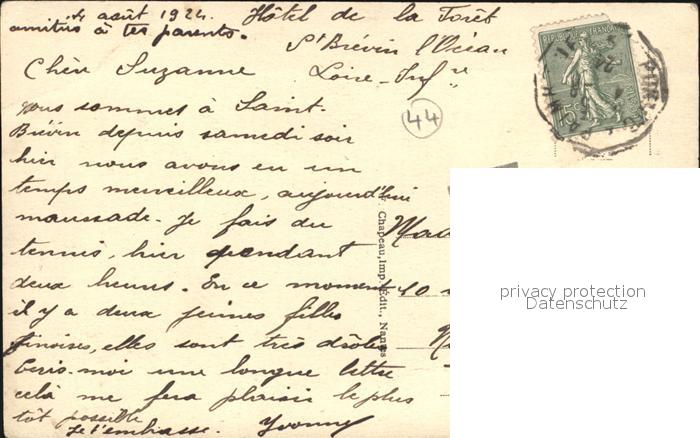 4 août 1924. Hôtel de la Forêt
amitiés à tes parents.
St Brévin l'Océan
Chère Suzanne Loire-Infre
44
nous sommes à Saint-
Brévin depuis samedi soir
hier nous avons eu un
temps merveilleux, aujourd'hui
maussade. Je fais du
tennis, hier pendant
deux heures. En ce moment
il y a deux jeunes filles
finoises, elles sont très drôles
Ecris-moi une longue lettre
celà me fera plaisir le plus
tôt possible
Je t'embrasse. Yvonne
F. Chapeau, Imp. Édit., Nantes
REPUBLIQUE FRANÇAISE
15c
Mad
10
privacy protection
Datenschutz